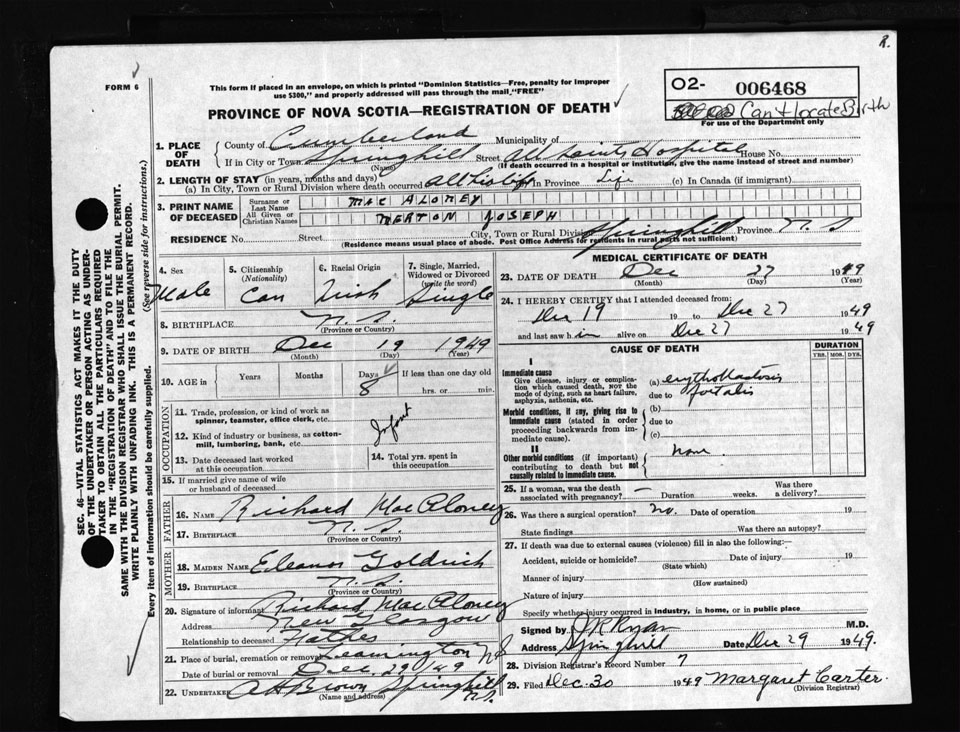 R.
FORM 6
This form if placed in an envelope, on which is printed "Dominion Statistics—Free, penalty for improper
use $300," and properly addressed will pass through the mail "FREE"
PROVINCE OF NOVA SCOTIA—REGISTRATION OF DEATH
O2- 006468
Can't locate Birth
For use of the Department only
SEC. 46—VITAL STATISTICS ACT MAKES IT THE DUTY
OF THE UNDERTAKER OR PERSON ACTING AS UNDER-
TAKER TO OBTAIN ALL THE PARTICULARS REQUIRED
IN THE "REGISTRATION OF DEATH" AND TO FILE THE
SAME WITH THE DIVISION REGISTRAR WHO SHALL ISSUE THE BURIAL PERMIT.
WRITE PLAINLY WITH UNFADING INK. THIS IS A PERMANENT RECORD.
Every item of information should be carefully supplied. (See reverse side for instructions.)
1. PLACE OF DEATH
County of Cumberland Municipality of
If in City or Town Springhill Street All Saints Hospital House No.
(Name) (If death occurred in a hospital or institution, give the name instead of street and number)
2. LENGTH OF STAY (in years, months and days)
(a) In City, Town or Rural Division where death occurred All his life In Province Life (c) In Canada (if immigrant)
3. PRINT NAME OF DECEASED
Surname or Last Name MAC ALONEY
All Given or Christian Names MERTON JOSEPH
RESIDENCE No. Street City, Town or Rural Division Springhill Province N.S
(Residence means usual place of abode. Post Office Address for residents in rural parts not sufficient)
4. Sex Male
5. Citizenship (Nationality) Can
6. Racial Origin Irish
7. Single, Married, Widowed or Divorced (write the word) Single
8. BIRTHPLACE N.S.
(Province or Country)
9. DATE OF BIRTH Dec 19 1949
(Month) (Day) (Year)
10. AGE in Years Months Days 8 If less than one day old hrs. or min.
OCCUPATION
11. Trade, profession, or kind of work as spinner, teamster, office clerk, etc.
Infant
12. Kind of industry or business, as cotton-mill, lumbering, bank, etc.
13. Date deceased last worked at this occupation
14. Total yrs. spent in this occupation
15. If married give name of wife or husband of deceased
FATHER
16. NAME Richard MacAloney
17. BIRTHPLACE N.S.
(Province or Country)
MOTHER
18. MAIDEN NAME Eleanor Goldrich
19. BIRTHPLACE N.S.
(Province or Country)
20. Signature of informant Richard MacAloney
Address New Glasgow
Relationship to deceased Father
21. Place of burial, cremation or removal Leamington NS
Date of burial or removal Dec. 29/49
22. Undertaker A H Brown Springhill N.S.
(Name and address)
MEDICAL CERTIFICATE OF DEATH
23. DATE OF DEATH Dec 27 1949
(Month) (Day) (Year)
24. I HEREBY CERTIFY that I attended deceased from:
Dec 19 19 to Dec 27 1949
and last saw him alive on Dec 27 1949
CAUSE OF DEATH
DURATION
YRS. MOS. DYS.
I
Immediate cause
Give disease, injury or complication which caused death, NOT the mode of dying, such as heart failure, asphyxia, asthenia, etc.
(a) erythroblastosis
due to foetalis
Morbid conditions, if any, giving rise to immediate cause (stated in order proceeding backwards from immediate cause).
(b)
due to
(c)
II
Other morbid conditions (if important) contributing to death but not causally related to immediate cause.
none
25. If a woman, was the death associated with pregnancy? — Duration weeks. Was there a delivery?
26. Was there a surgical operation? no. Date of operation 19
State findings Was there an autopsy?
27. If death was due to external causes (violence) fill in also the following:—
Accident, suicide or homicide? Date of injury 19
(State which)
Manner of injury
(How sustained)
Nature of injury
Specify whether injury occurred in industry, in home, or in public place
Signed by J R Ryan M.D.
Address Springhill Date Dec 29 1949.
28. Division Registrar's Record Number 7
29. Filed Dec. 30 1949 Margaret Carter.
(Division Registrar)